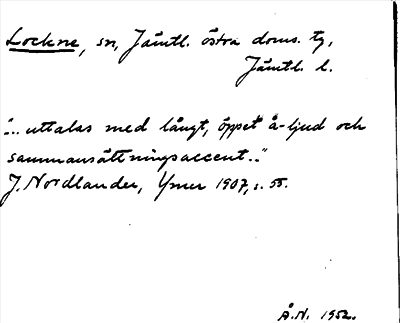 Lockne, sn, Jämtl. östra doms. tg,
Jämtl. l.
"... uttalas med långt, öppet å-ljud och
sammansättningsaccent.."
J. Nordlander, Ymer 1907, s. 55.
Å.N. 1952.